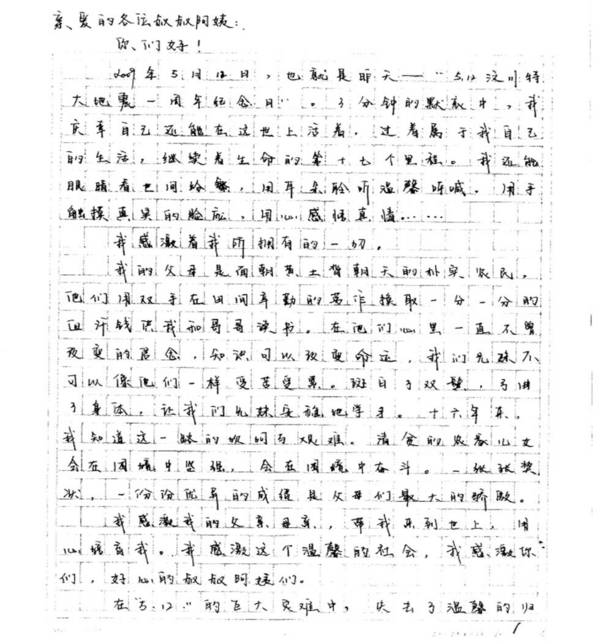 亲爱的各位叔叔阿姨：
你们好！
2009年5月12日，也就是昨天——“5.12汶川特
大地震一周年纪念日”。3分钟的默哀中，我
庆幸自己还能在这世上活着。过着属于我自己
的生活，继续着生命的第十七个里程。我还能
眼睛看世间 ，用耳朵聆听温馨呼喊。用手
触摸真实的脸庞，用心感悟真情……
我感激着我所拥有的一切。
我的父母是面朝黄土背朝天的朴实农民，
他们用双手在田间辛勤的劳作换取一分一分的
血汗钱供我和哥哥读书。在他们心里一直不曾
改变的信念，知识可以改变命运，我们兄妹不
可以像他们一样受苦受累。斑白了双鬓，弓屈
了身体，让我们兄妹安稳地学习。十六年来，
我知道这一路的坎坷与艰难。清贫的农家儿女
会在困境中坚强，会在困境中奋斗。一张张奖
状，一份份优异的成绩是父母们最大的骄傲。
我感激我的父亲母亲，带我来到世上，用
心培育我。我感激这个温馨的社会，我感激你
们，好心的叔叔阿姨们。
在“5.12”的巨大灾难中，失去了温馨的归
1